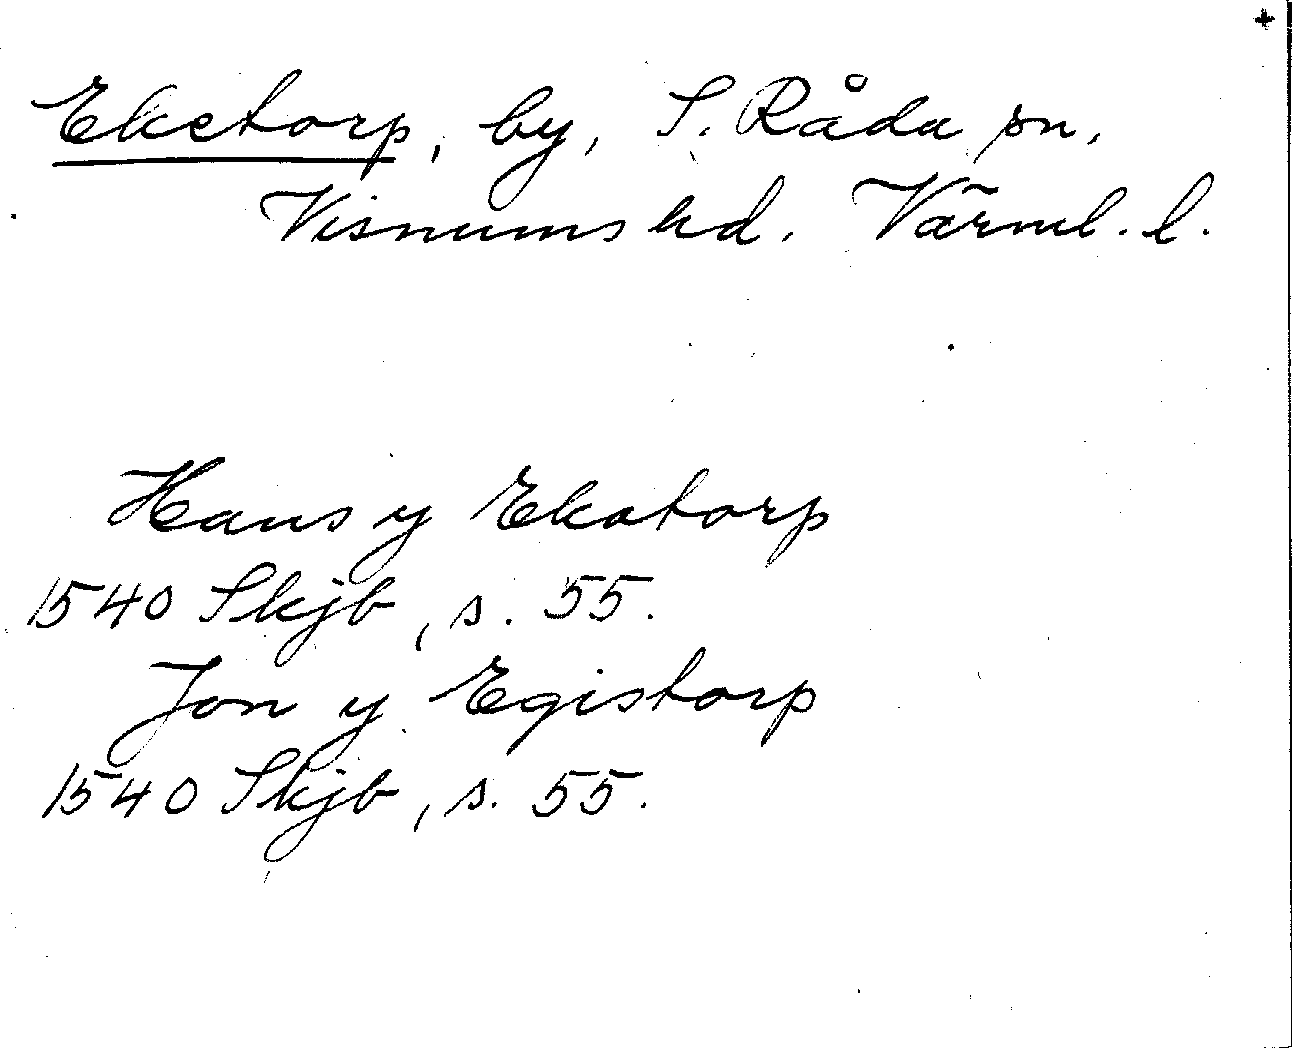 +
Eketorp, by, S. Råda sn,
Visnums hd. Värml. l.
Hans y Ekatorp
1540 Skjb, s. 55.
Jon y Egistorp
1540 Skjb, s. 55.